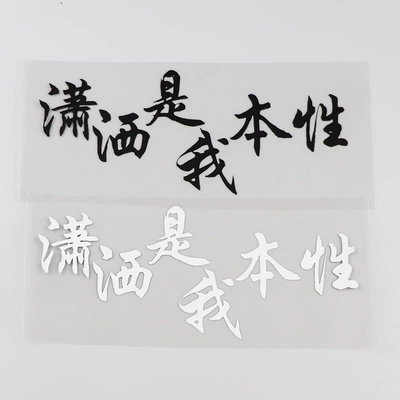 潇洒是我本性
潇洒是我本性